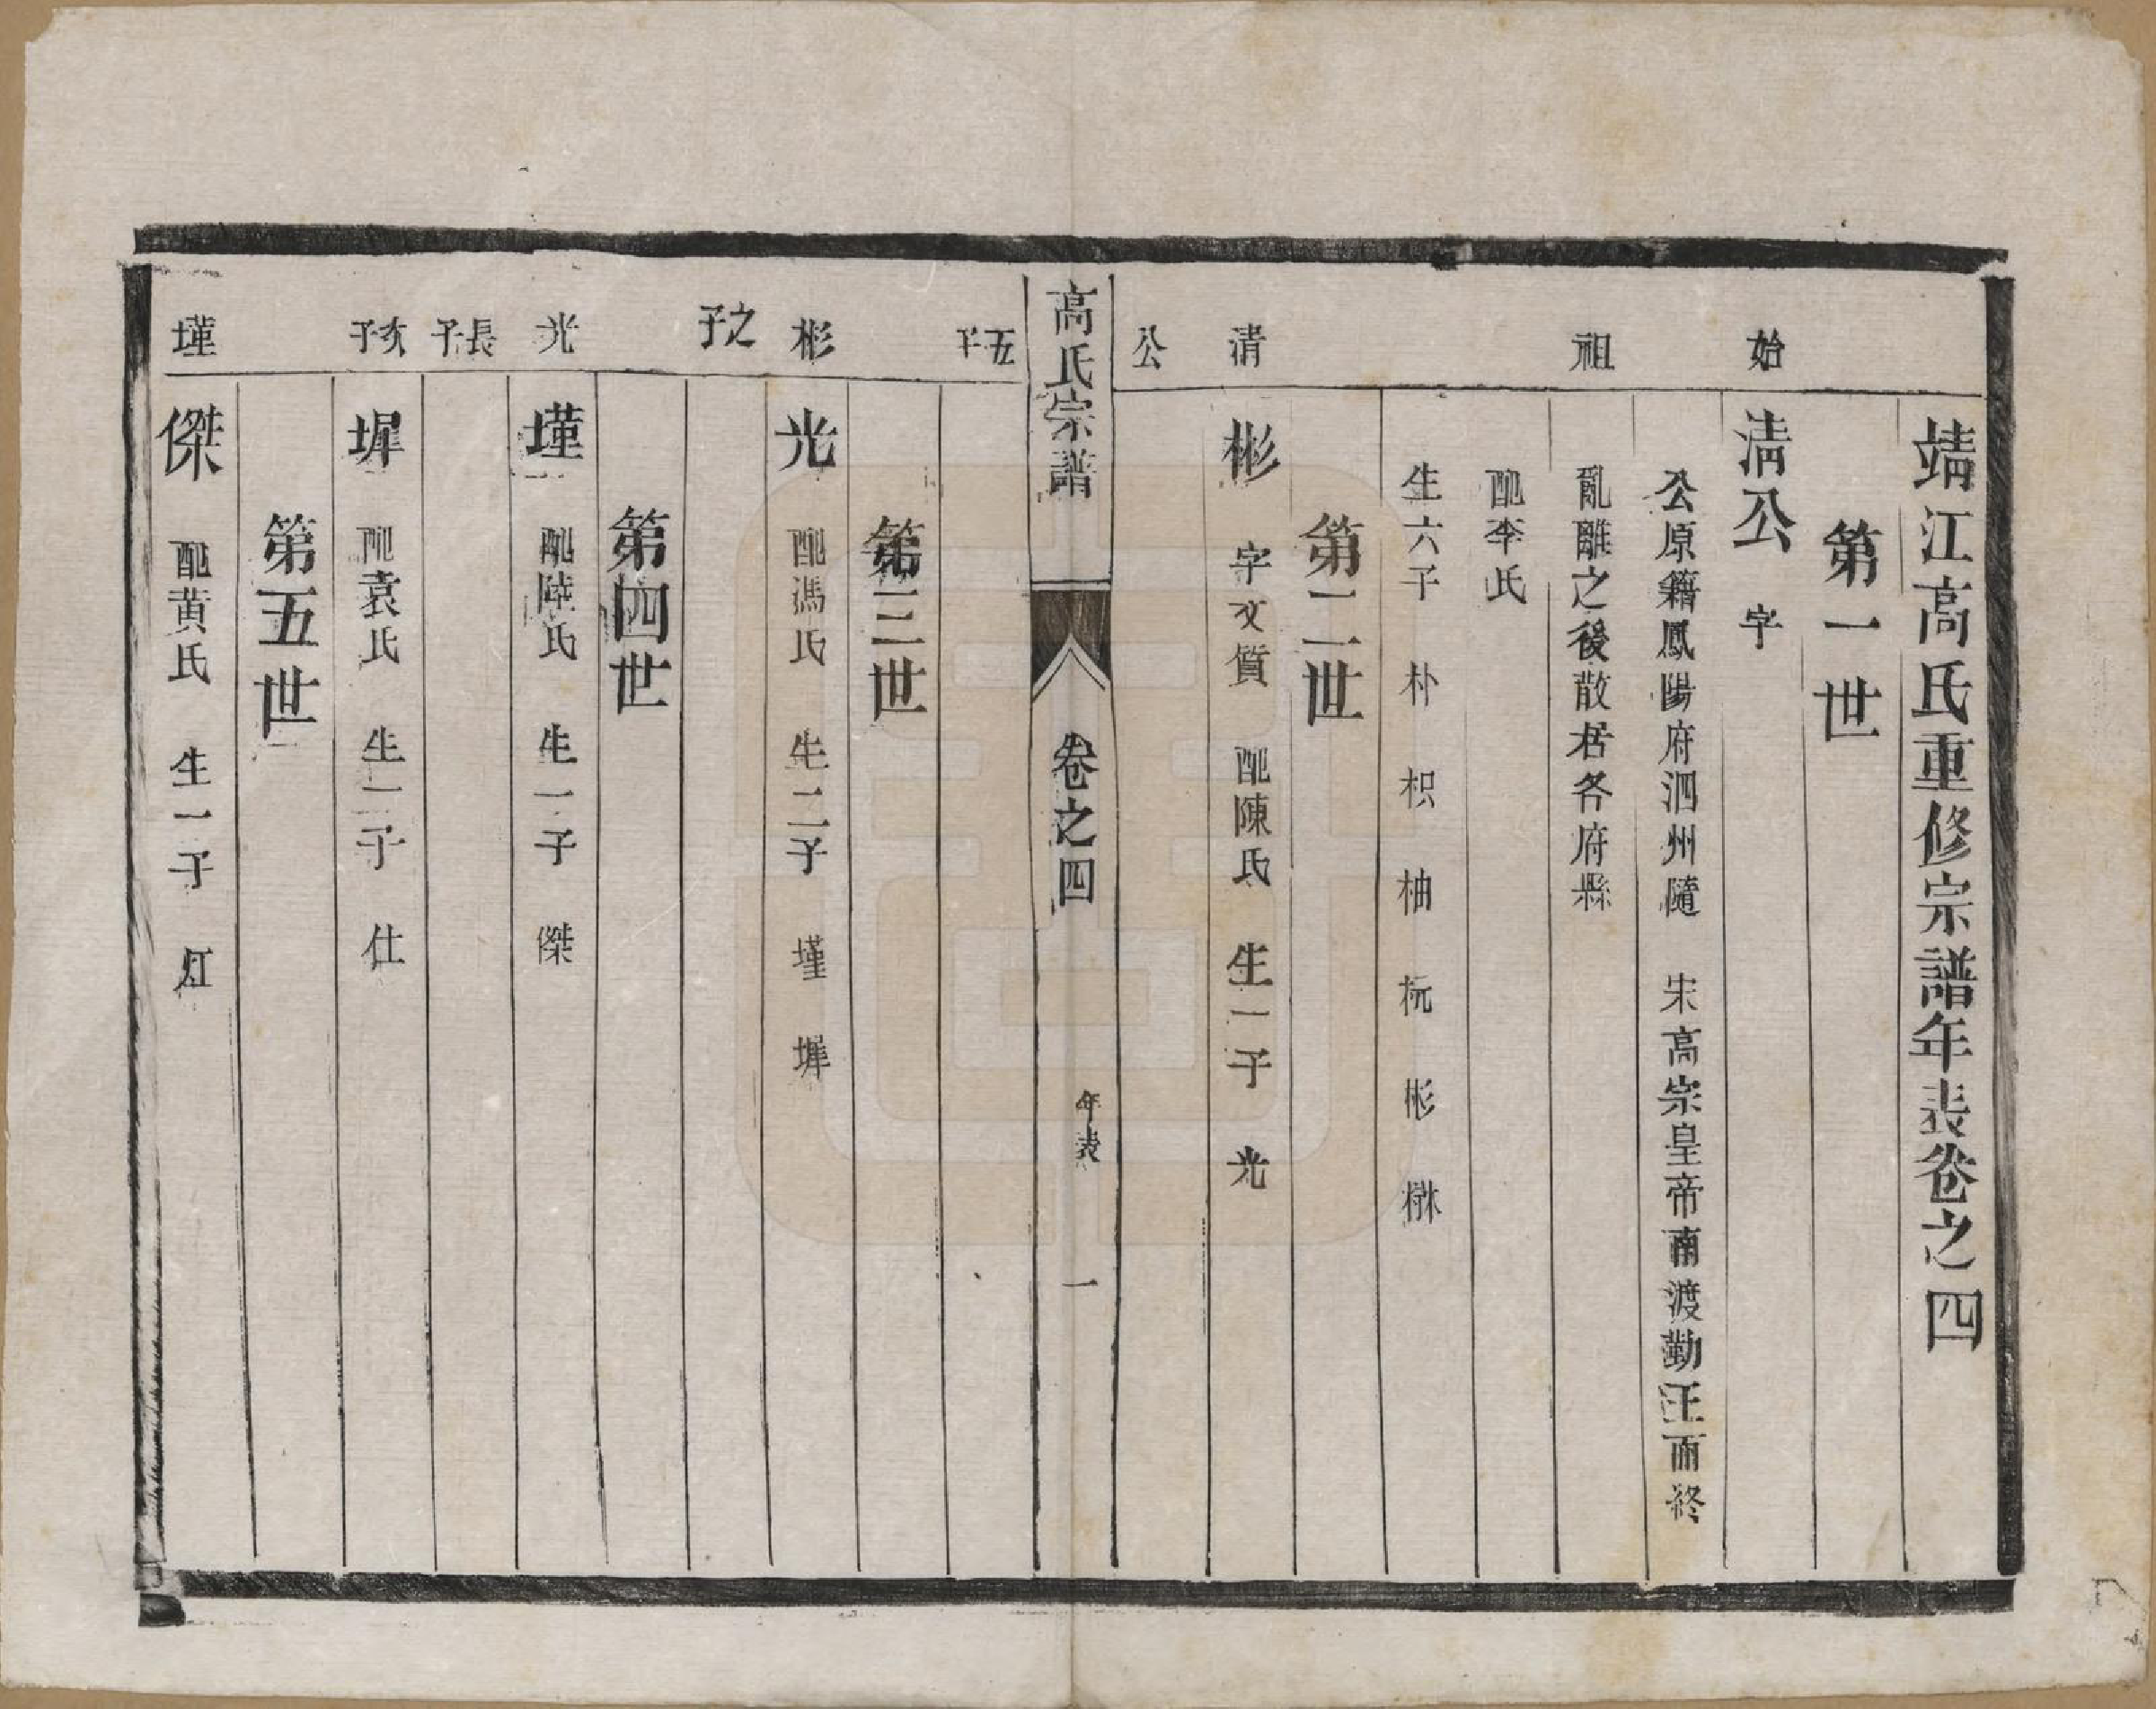 靖江高氏重修宗譜年表卷之四
第一世
始祖
淸公 字
公原籍鳳陽府泗州隨 宋高宗皇帝南渡勤王而終
亂離之後散居各府縣
配李氏
生六子 朴 枳 柚 杬 彬 楙
第二世
清公五子
彬 字文質 配陳氏 生一子 光
高氏宗譜 卷之四 年表 一
第三世
彬之子
光 配馮氏 生二子 墐 墀
第四世
光長子
墐 配陸氏 生一子 傑
次子
墀 配袁氏 生一子 仕
第五世
墐
傑 配黄氏 生一子 灯